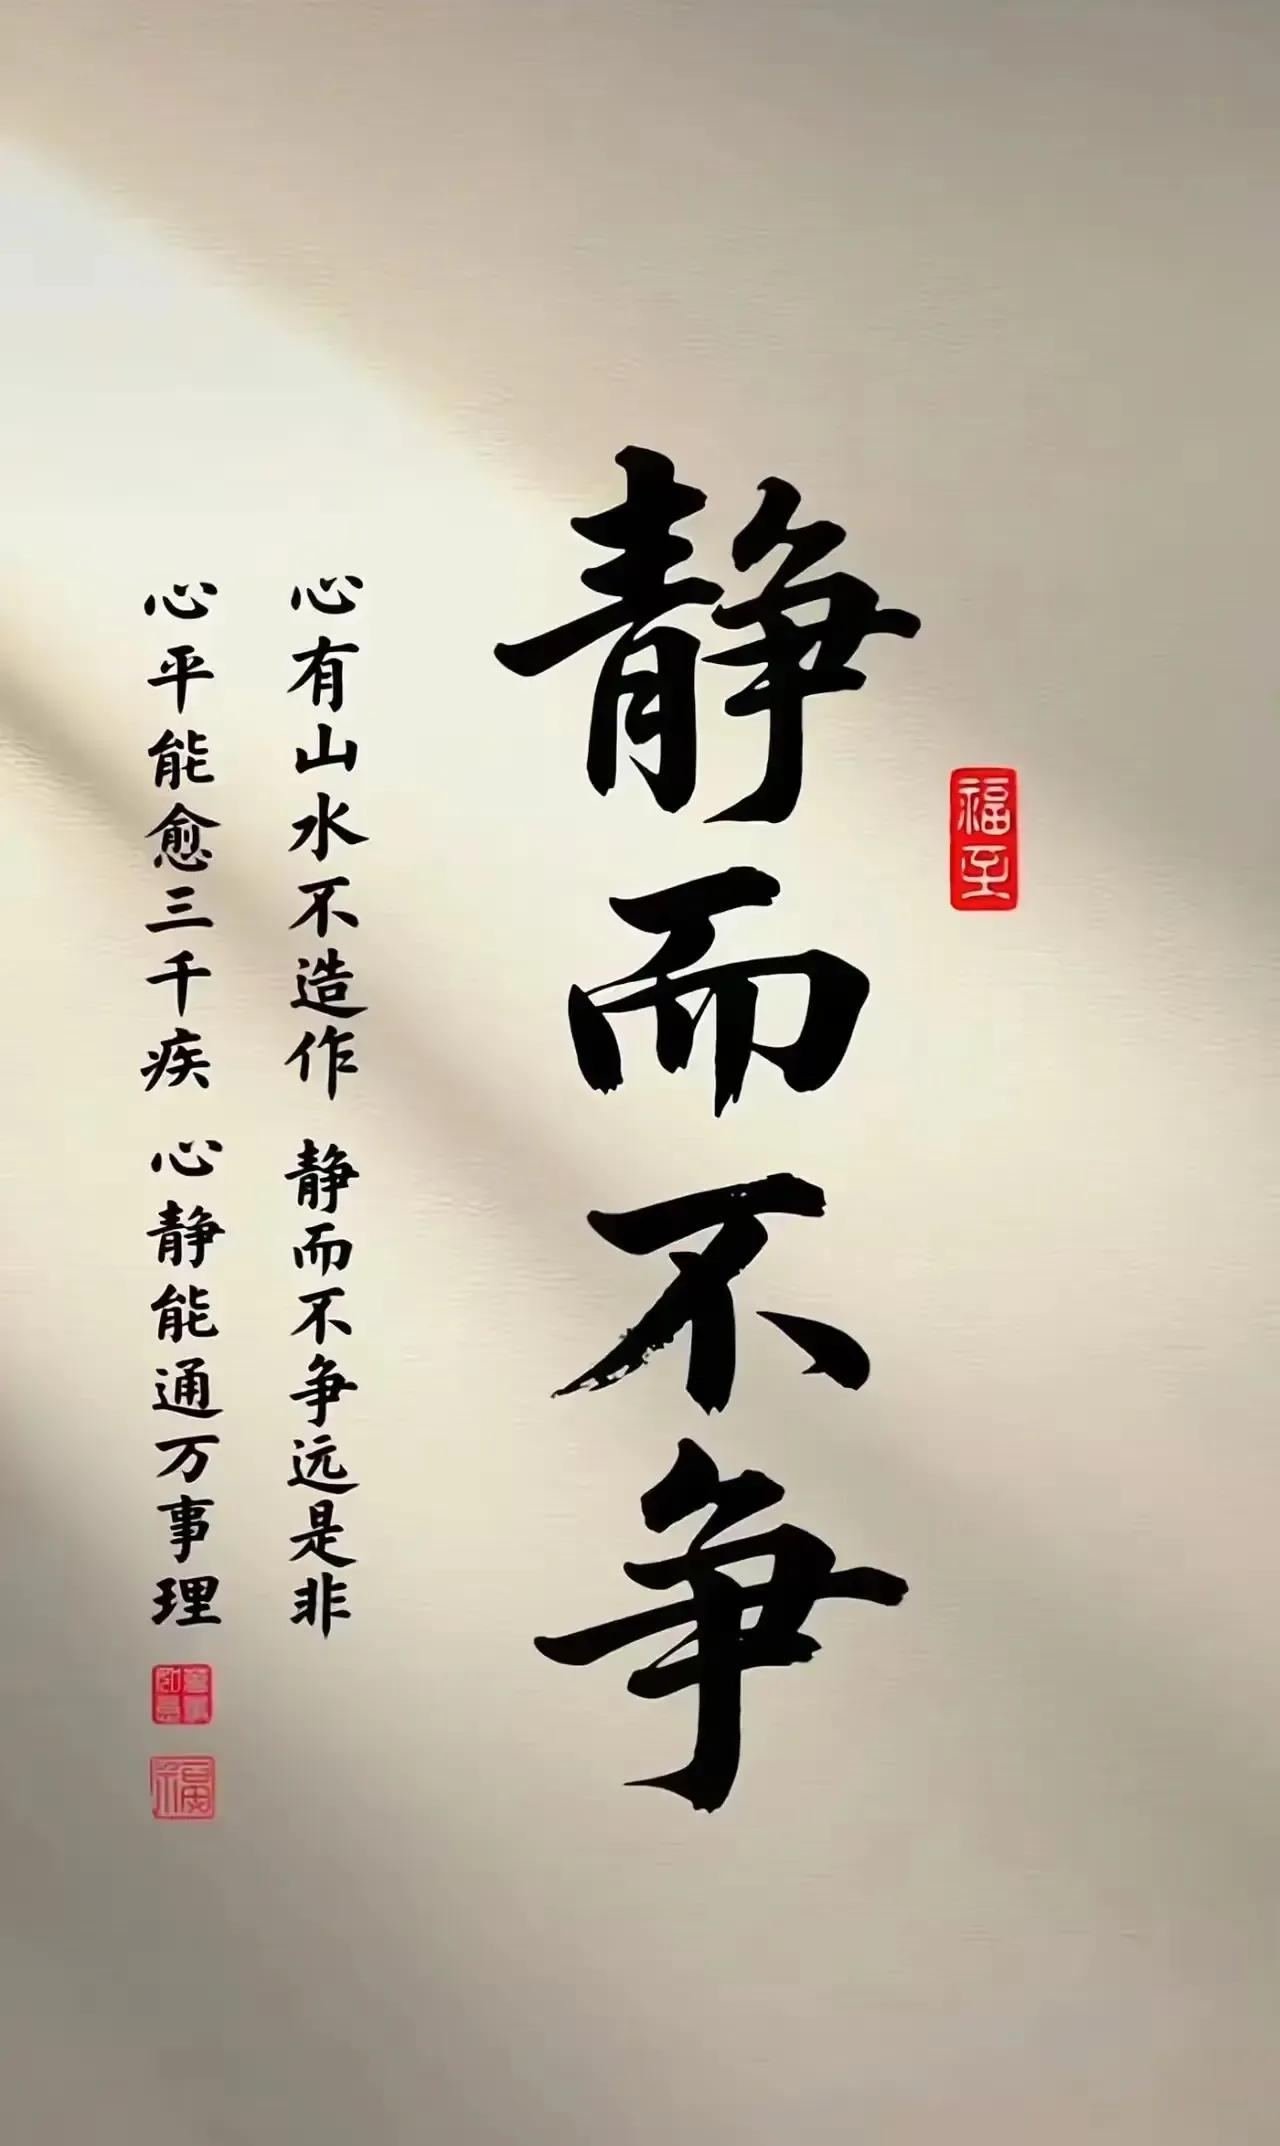 福至
静而不争
心有山水不造作 静而不争远是非
心平能愈三千疾 心静能通万事理
福